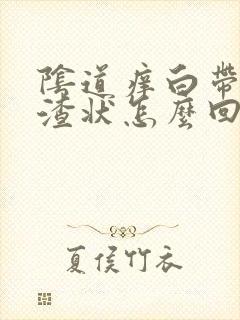 陰道痒白帶
渣狀怎麼回
夏侯竹衣